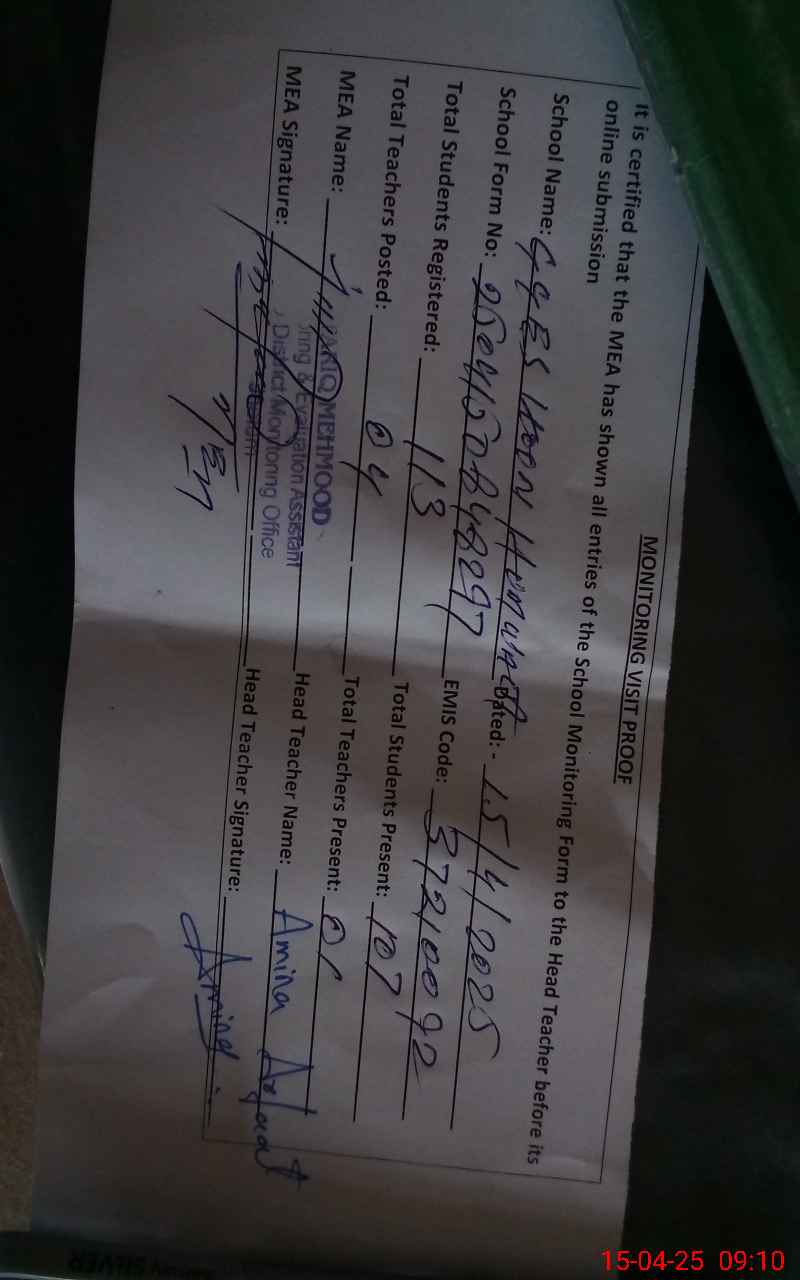 MONITORING VISIT PROOF
It is certified that the MEA has shown all entries of the School Monitoring Form to the Head Teacher before its
online submission
School Name: Dated: - 15/4/2025
School Form No: EMIS Code: 37210092
Total Students Registered: 113 Total Students Present: 107
Total Teachers Posted: 04 Total Teachers Present: 01
MEA Name: Head Teacher Name: Amina
MEA Signature: Head Teacher Signature: Amina
MEHMOOD
Evaluation Assistant
District Monitoring Office
15-04-25 09:10
SILVER